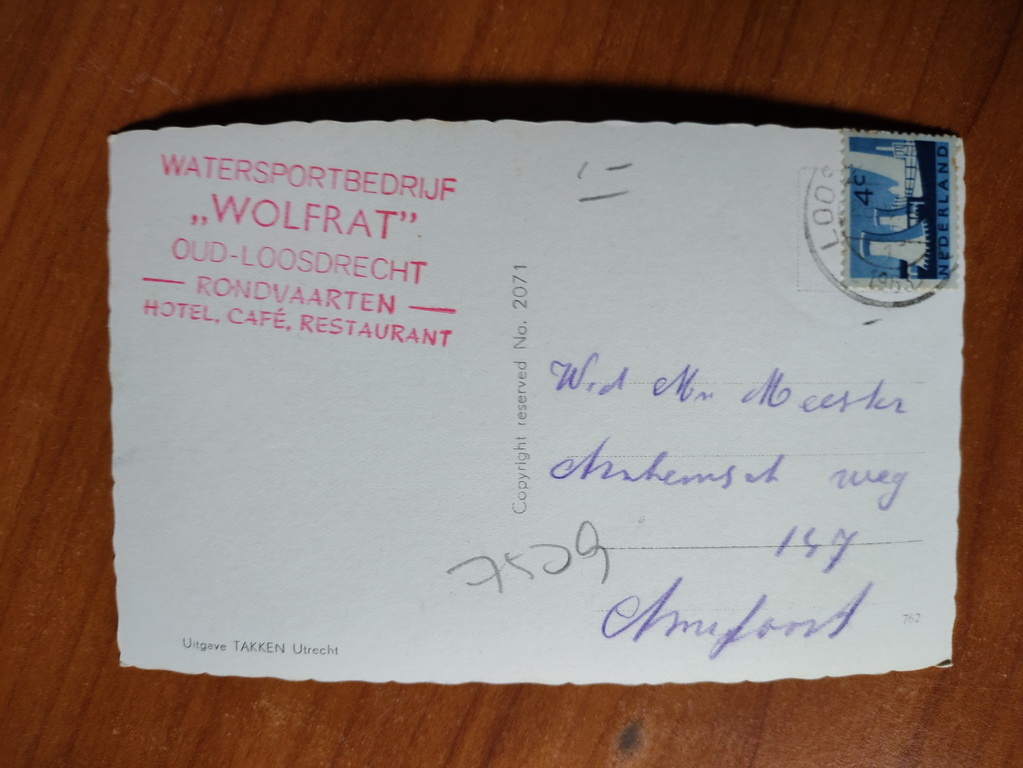 WATERSPORTBEDRIJF
„WOLFRAT”
OUD-LOOSDRECHT
— RONDVAARTEN —
HOTEL, CAFÉ, RESTAURANT
Uitgave TAKKEN Utrecht
Copyright reserved No. 2071
1=
4c
NEDERLAND
LOOS
Wed Mr Meester
Arnhemsch weg
147
Amersfoort
7529
762